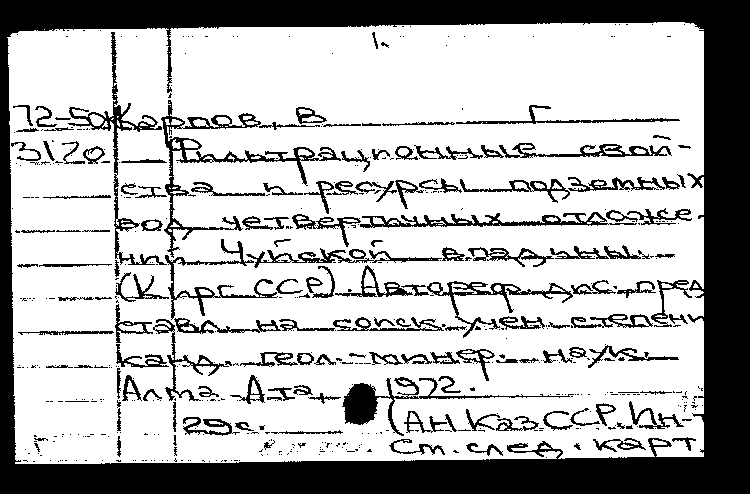 1.
72-50ж Карпов, В Г
3170 Фильтрационные свой-
ства и ресурсы подземных
вод четвертичных отложе-
ний Чуйской впадины.
(Кирг. ССР). Автореф. дис., пред
ставл. на соиск. учен. степени
канд. геол.-минер. наук.
Алма-Ата, 1972.
29с. (АН КазССР. Ин-т
См. след. карт.